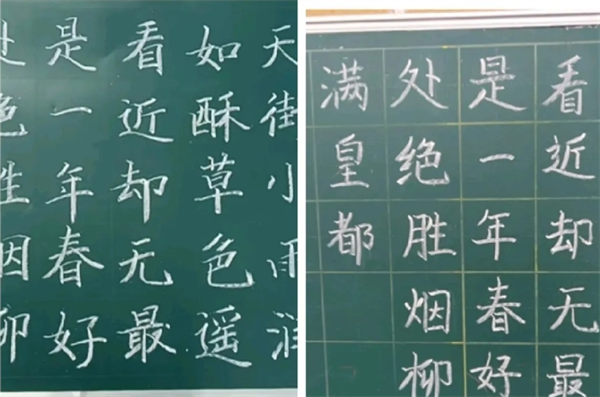 天街小雨润
如酥草色遥
看近却无最
是一年春好
处绝胜烟柳
看近却无最
是一年春好
处绝胜烟柳
满皇都